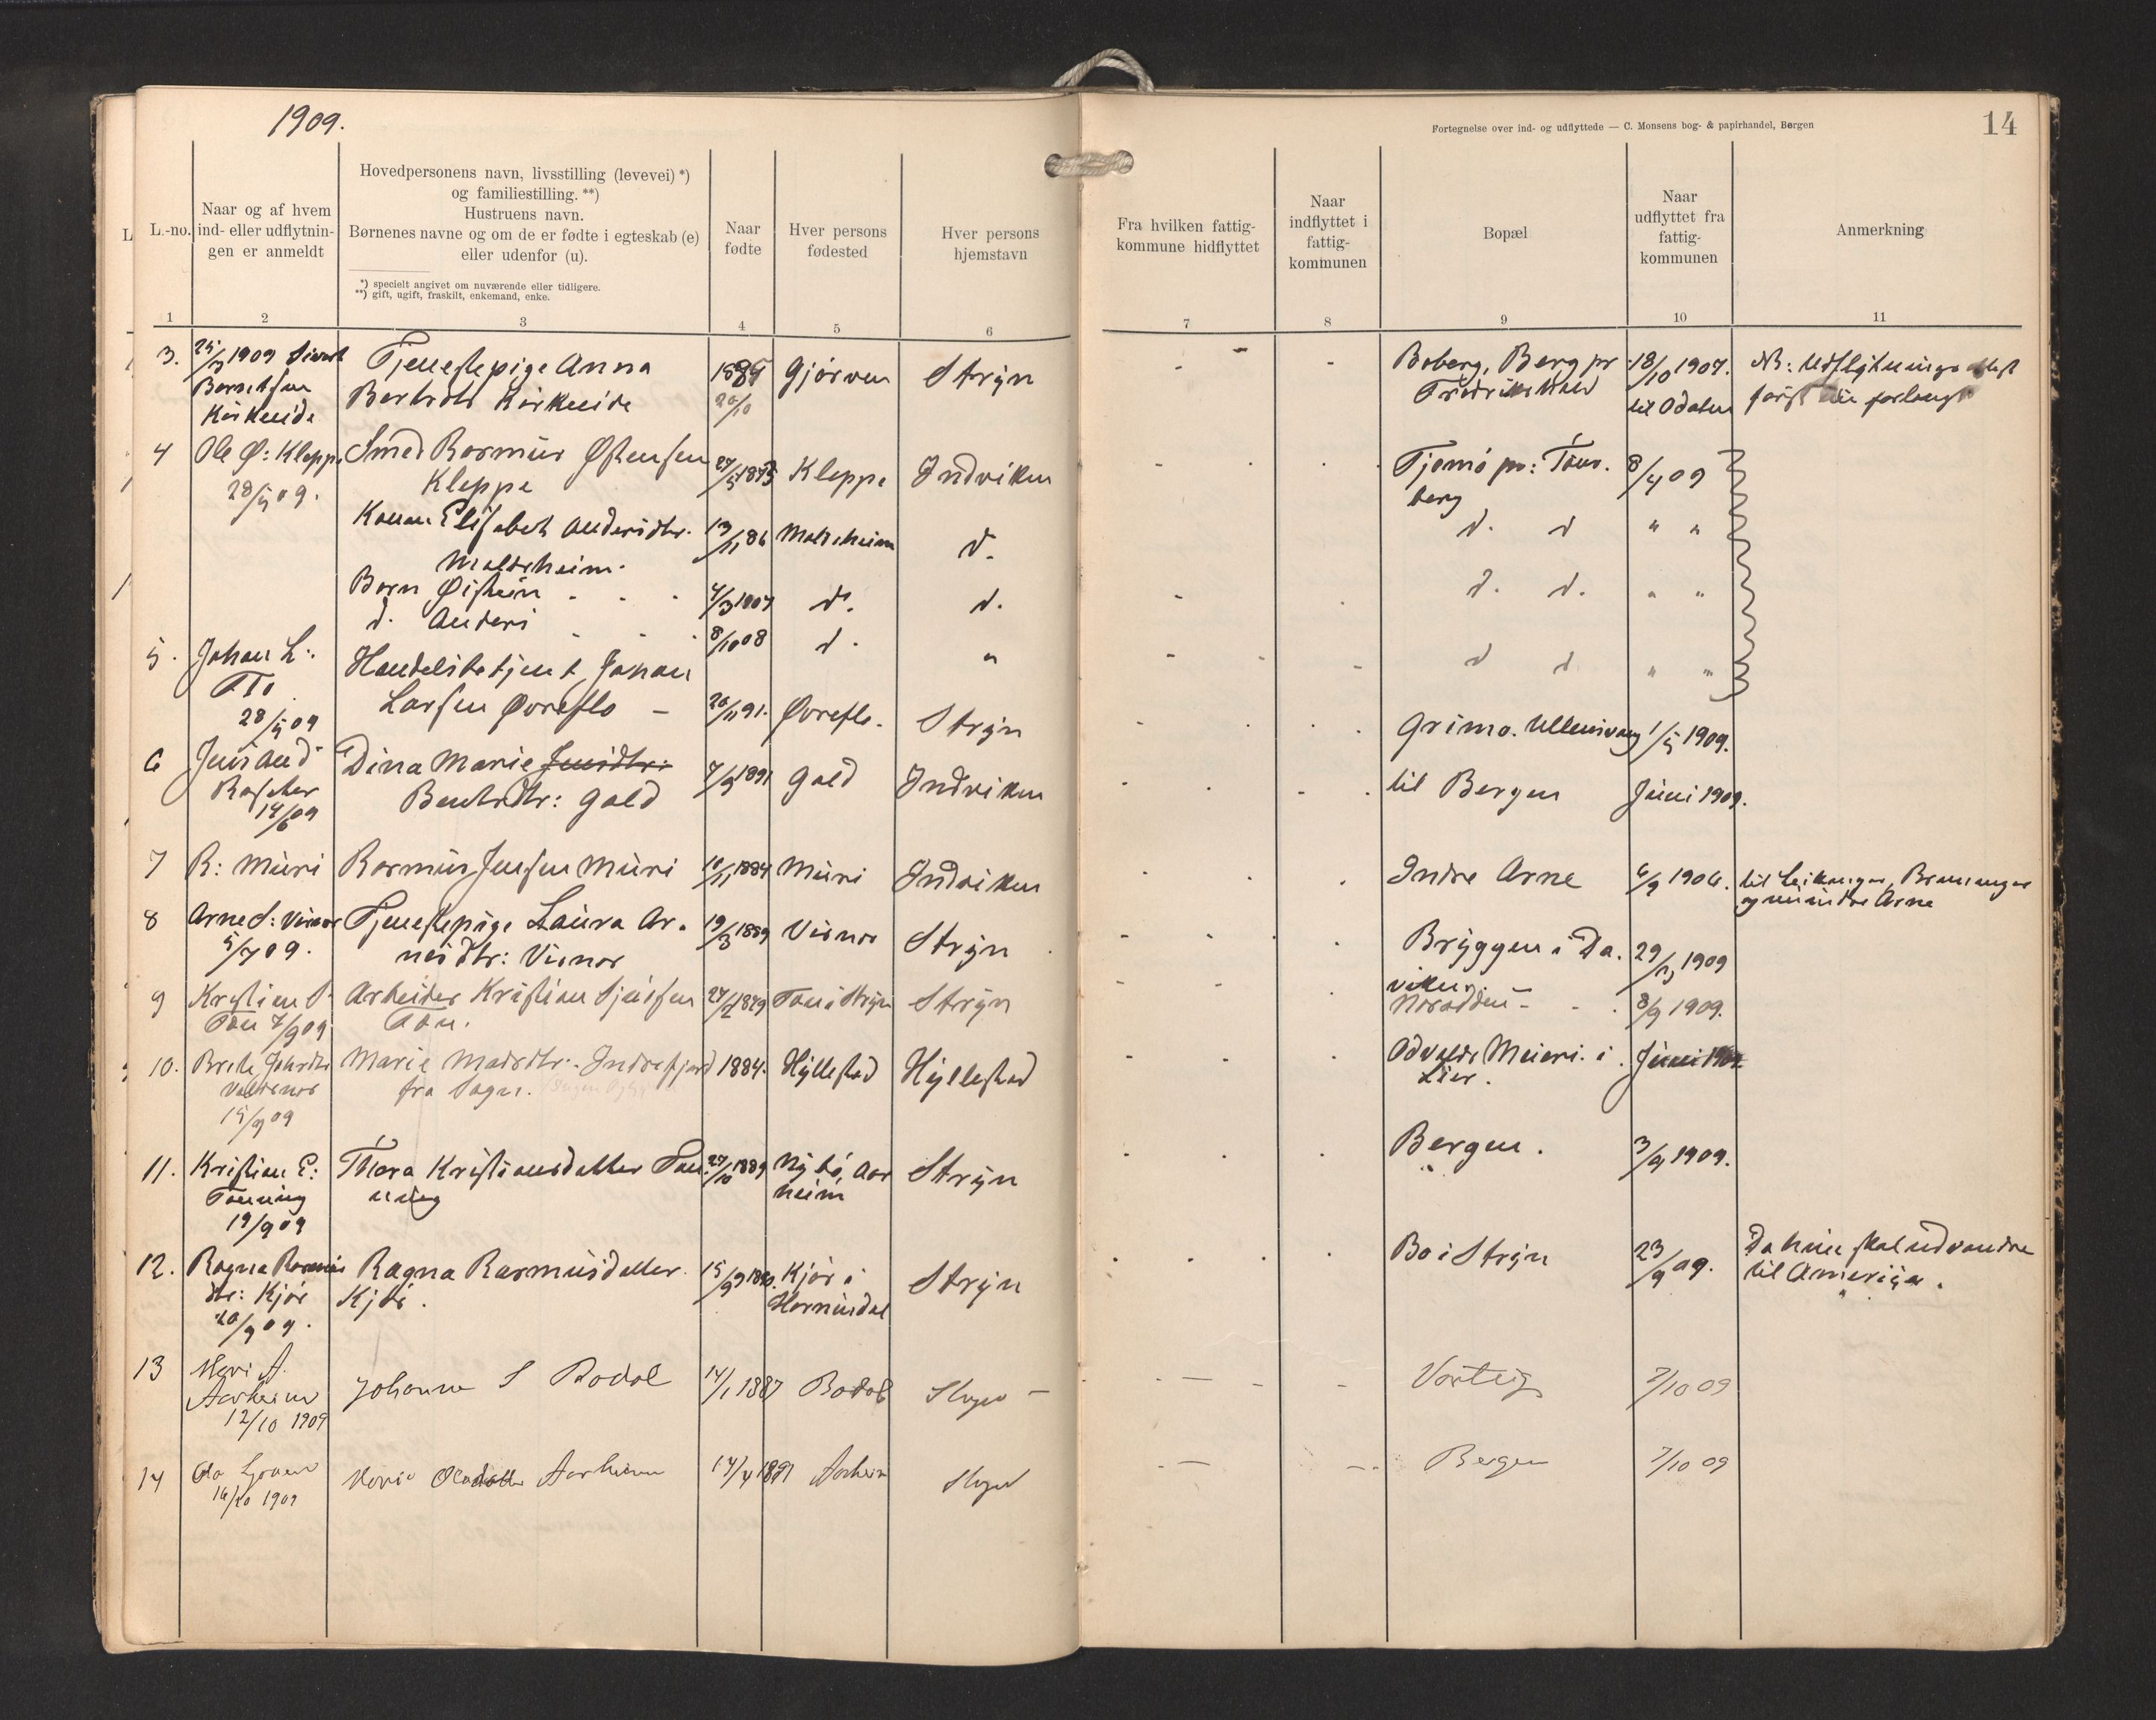 1909.
Fortegnelse over ind- og udflyttede — C. Monsens bog- & papirhandel, Bergen
14
L.-no.
Naar og af hvem
ind- eller udflytnin-
gen er anmeldt
Hovedpersonens navn, livsstilling (levevei) *)
og familiestilling. **)
Hustruens navn.
Børnenes navne og om de er fødte i egteskab (e)
eller udenfor (u).
*) specielt angivet om nuværende eller tidligere.
**) gift, ugift, fraskilt, enkemand, enke.
Naar
fødte
Hver persons
fødested
Hver persons
hjemstavn
Fra hvilken fattig-
kommune hidflyttet
Naar
indflyttet i
fattig-
kommunen
Bopæl
Naar
udflyttet fra
fattig-
kommunen
Anmerkning
1 2 3 4 5 6 7 8 9 10 11
3. 25/3 1909 Sivert Tjenestepige Anna 1885 Gjørven Stryn - - Boberg, Berg pr 18/10 1907. NB: Udflytningsattest
Berntsen Berntsdtr Kirkeeide 20/10 Fredrikshald til Odalen først
Kirkeeide
4 Ole Ø: Kleppe Smed Rasmus Østensen 27/5 1873 Kleppe Indviken Tjømø pr: Tøns- 8/4 09
28/5 09. Kleppe berg
Elisabet Andersdtr. 13/11 86 d. d. d " "
Børn Øistein 4/3 1907 d. d. d. d. " "
d. Anders 8/10 08 d. " d d " "
5. Johan L: Handelsbetjent Johan
Flo Larsen Øvreflo - 20/11 91. Øvreflo. Stryn Grimo. Ullensvang 1/5 1909.
28/5 09
6 Jens And Dina Marie Jensdtr: 7/9 1891 Gald Indviken til Bergen Juni 1909.
Bentsdtr: Gald
14/6 09
7 R: Muri Rasmus Jensen Muri 10/11 1884 Muri Indviken Indre Arne 6/9 1906. til Leikanger,
og nu indre Arne
8 Arne S: Visnes Tjenestepige Laura Ar- 19/3 1889 Visnes Stryn Bryggen i Da- 29/3 1909
5/7 09. nesdtr: Visnes viken
9 Kristian S. Arbeider Kristian Sjursen 27/2 1879 Ton i Stryn Stryn Notodden - 8/9 1909.
Ton 7/9 09 Ton.
10. Marie Madsdtr. Indrefjord 1884. Hyllestad Hyllestad Meieri i Juni
fra Sogn. Lier.
15/9 09
11. Kristian E: Thora Kristiansdatter Ton- 27/10 1889 Nybø, Aar- Stryn Bergen. 3/9 1909.
Tonning ning heim
19/9 09
12. Ragna Rasmus Ragna Rasmusdatter 15/9 Kjøs i Stryn Bø i Stryn 23/9 09. Da hun skal udvandre
dtr: Kjøs Kjøs. Hornindal til Amerika.
20/9 09.
13 Johanne S Bødal 14/1 1887 Bødal Stryn - 7/10 09
Aarheim
12/10 1909
14 Marie Olsdatter Aarheim 14/4 1891 Aarheim Stryn Bergen 7/10 09
16/10 1909